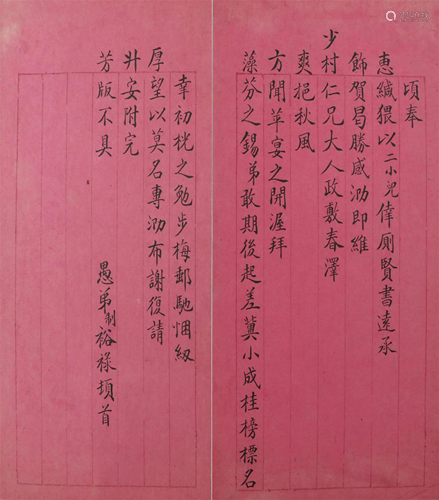 頃奉
惠緘猥以二小兒偉厠賢書遠承
飾賀曷勝感泐即維
少村仁兄大人政敷春澤
爽挹秋風
方聞苹宴之開渥拜
藻芬之錫弟敢期後起差冀小成桂榜標名
幸初桄之勉步梅郵馳悃紉
厚望以莫名專泐布謝復請
升安附完
芳版不具
愚弟制裕祿頓首